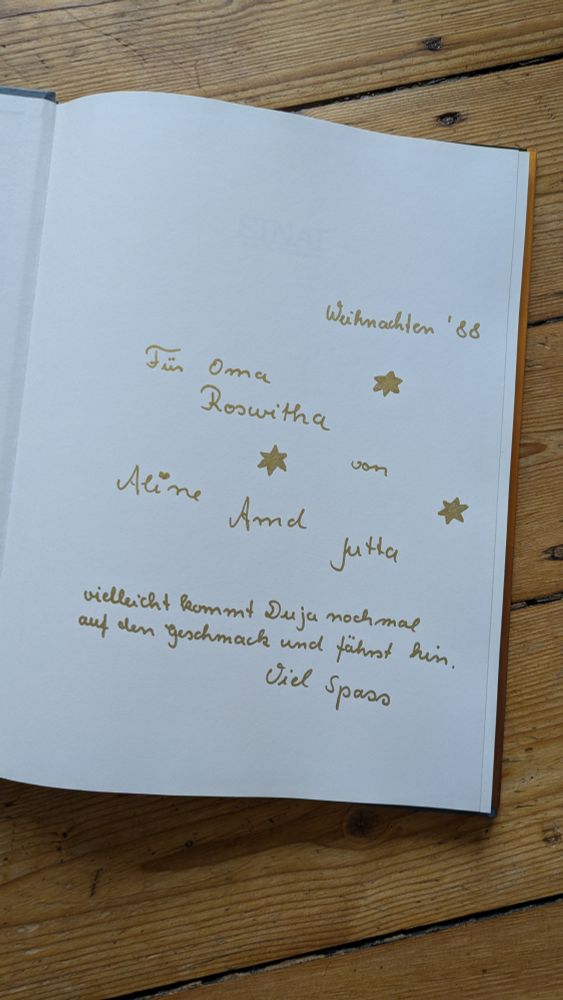 Weihnachten '88
Für Oma
Roswitha
von
Aline
Arnd
Jutta
vielleicht kommt Du ja nochmal
auf den Geschmack und fährst hin.
Viel Spass